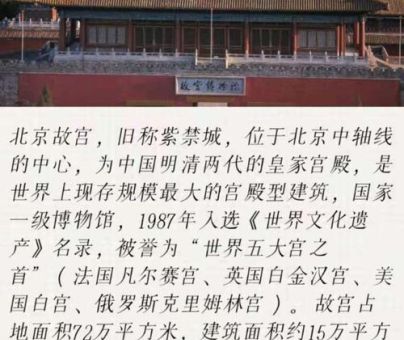 故宫博物院
北京故宫，旧称紫禁城，位于北京中轴线
的中心，为中国明清两代的皇家宫殿，是
世界上现存规模最大的宫殿型建筑，国家
一级博物馆，1987年入选《世界文化遗
产》名录，被誉为“世界五大宫之
首”（法国凡尔赛宫、英国白金汉宫、美
国白宫、俄罗斯克里姆林宫）。故宫占
地面积72万平方米，建筑面积约15万平方